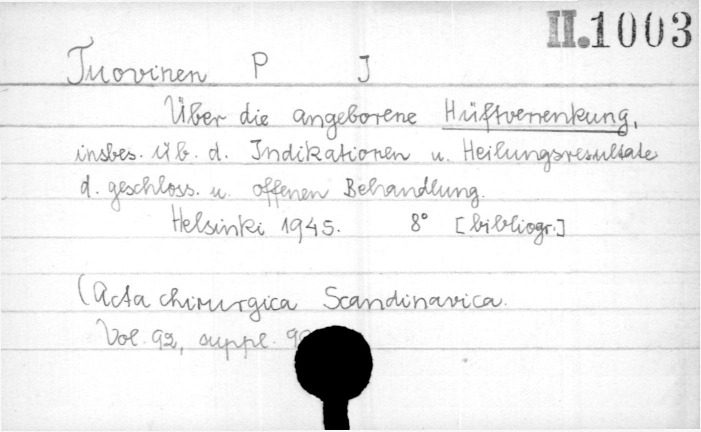 II.1003
Tuovinen P J
Über die angeborene Hüftverrenkung,
insbes. üb. d. Indikationen u. Heilungsresultate
d. geschloss. u. offenen Behandlung.
Helsinki 1945. 8° [bibliogr.]
(Acta chirurgica Scandinavica.
Vol. 92, suppl.